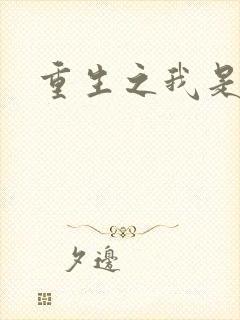 重生之我是
夕邊